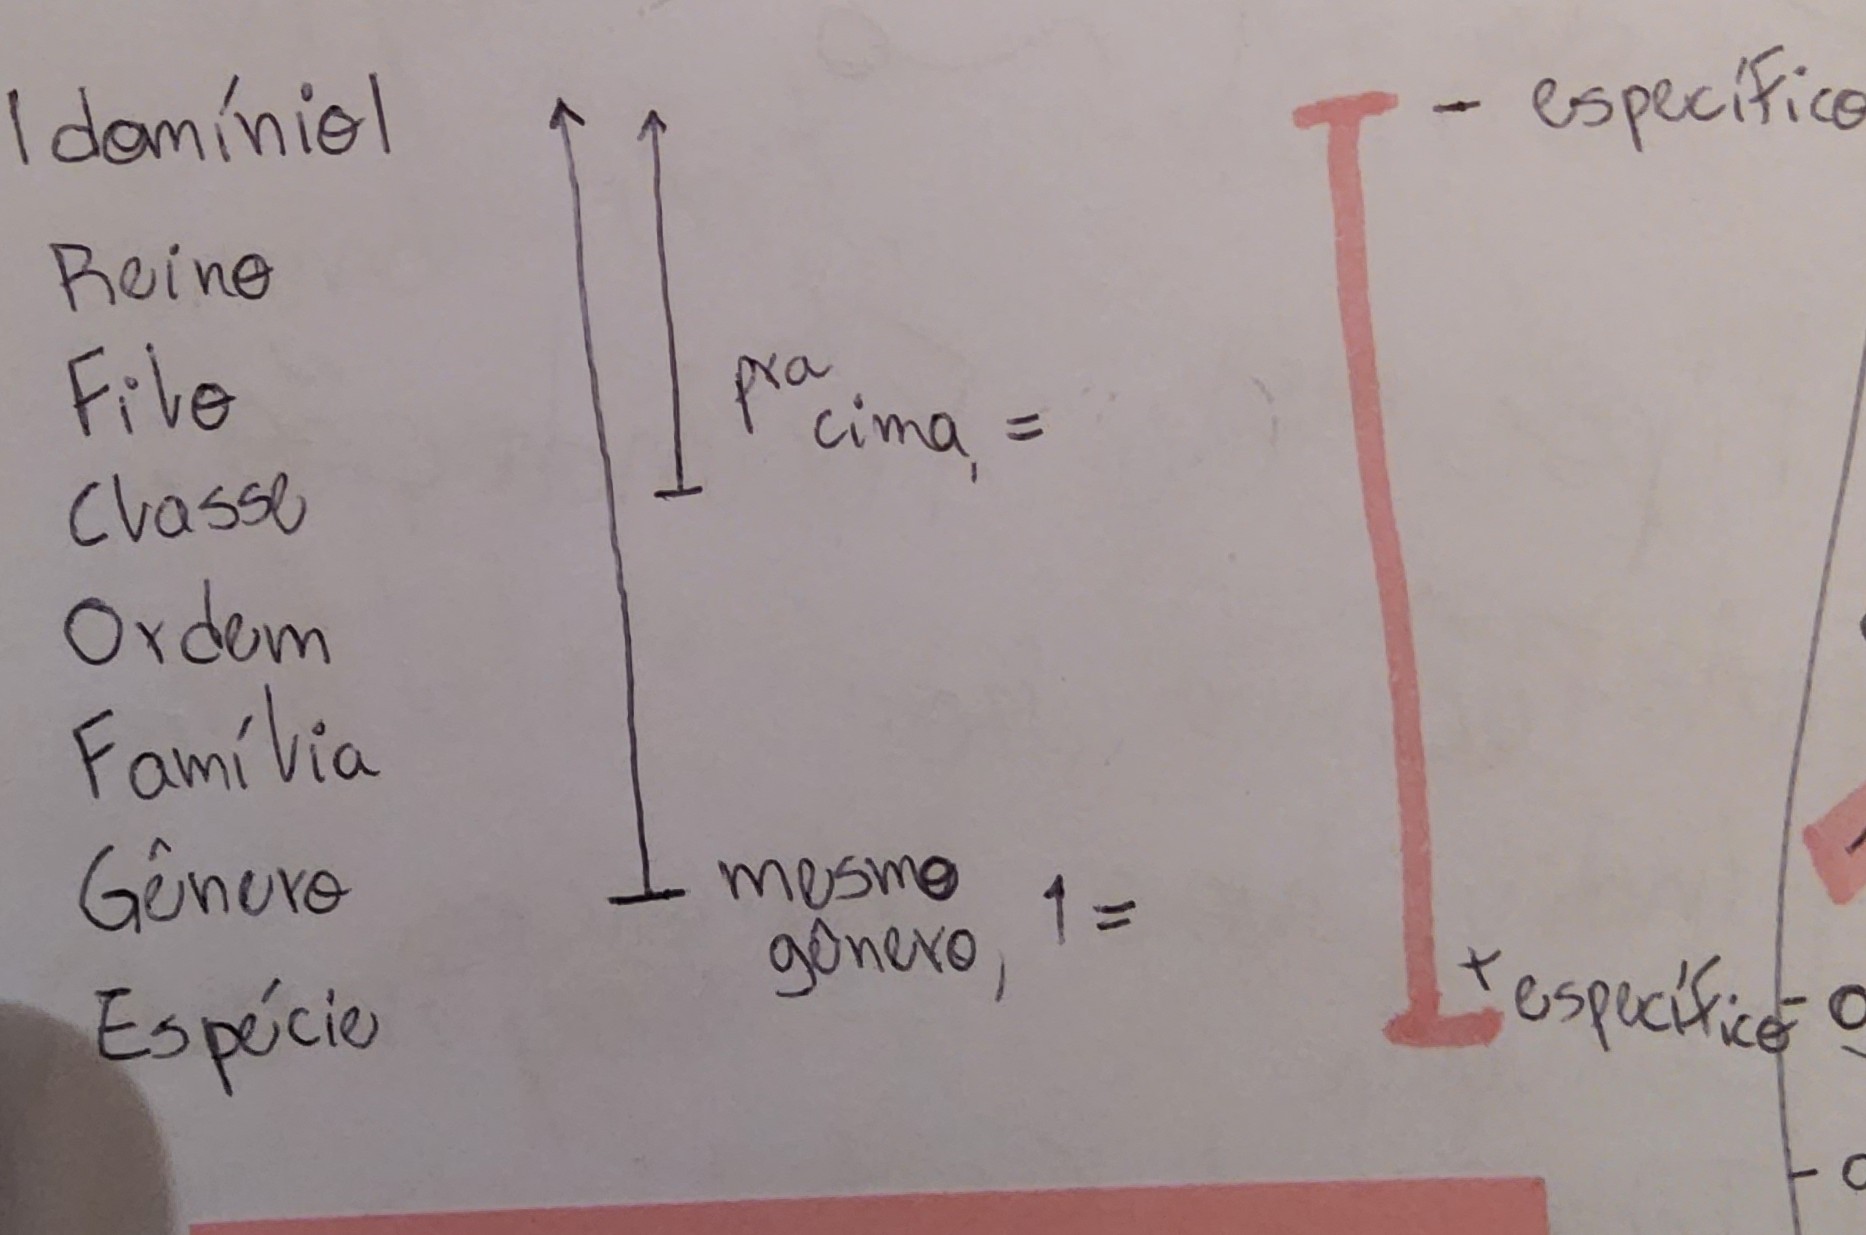 |domínio|
- específico
Reino
Filo
pra
cima, =
Classe
Ordem
Família
Gênero
mesmo
gênero, ↑ =
+ específico
Espécie